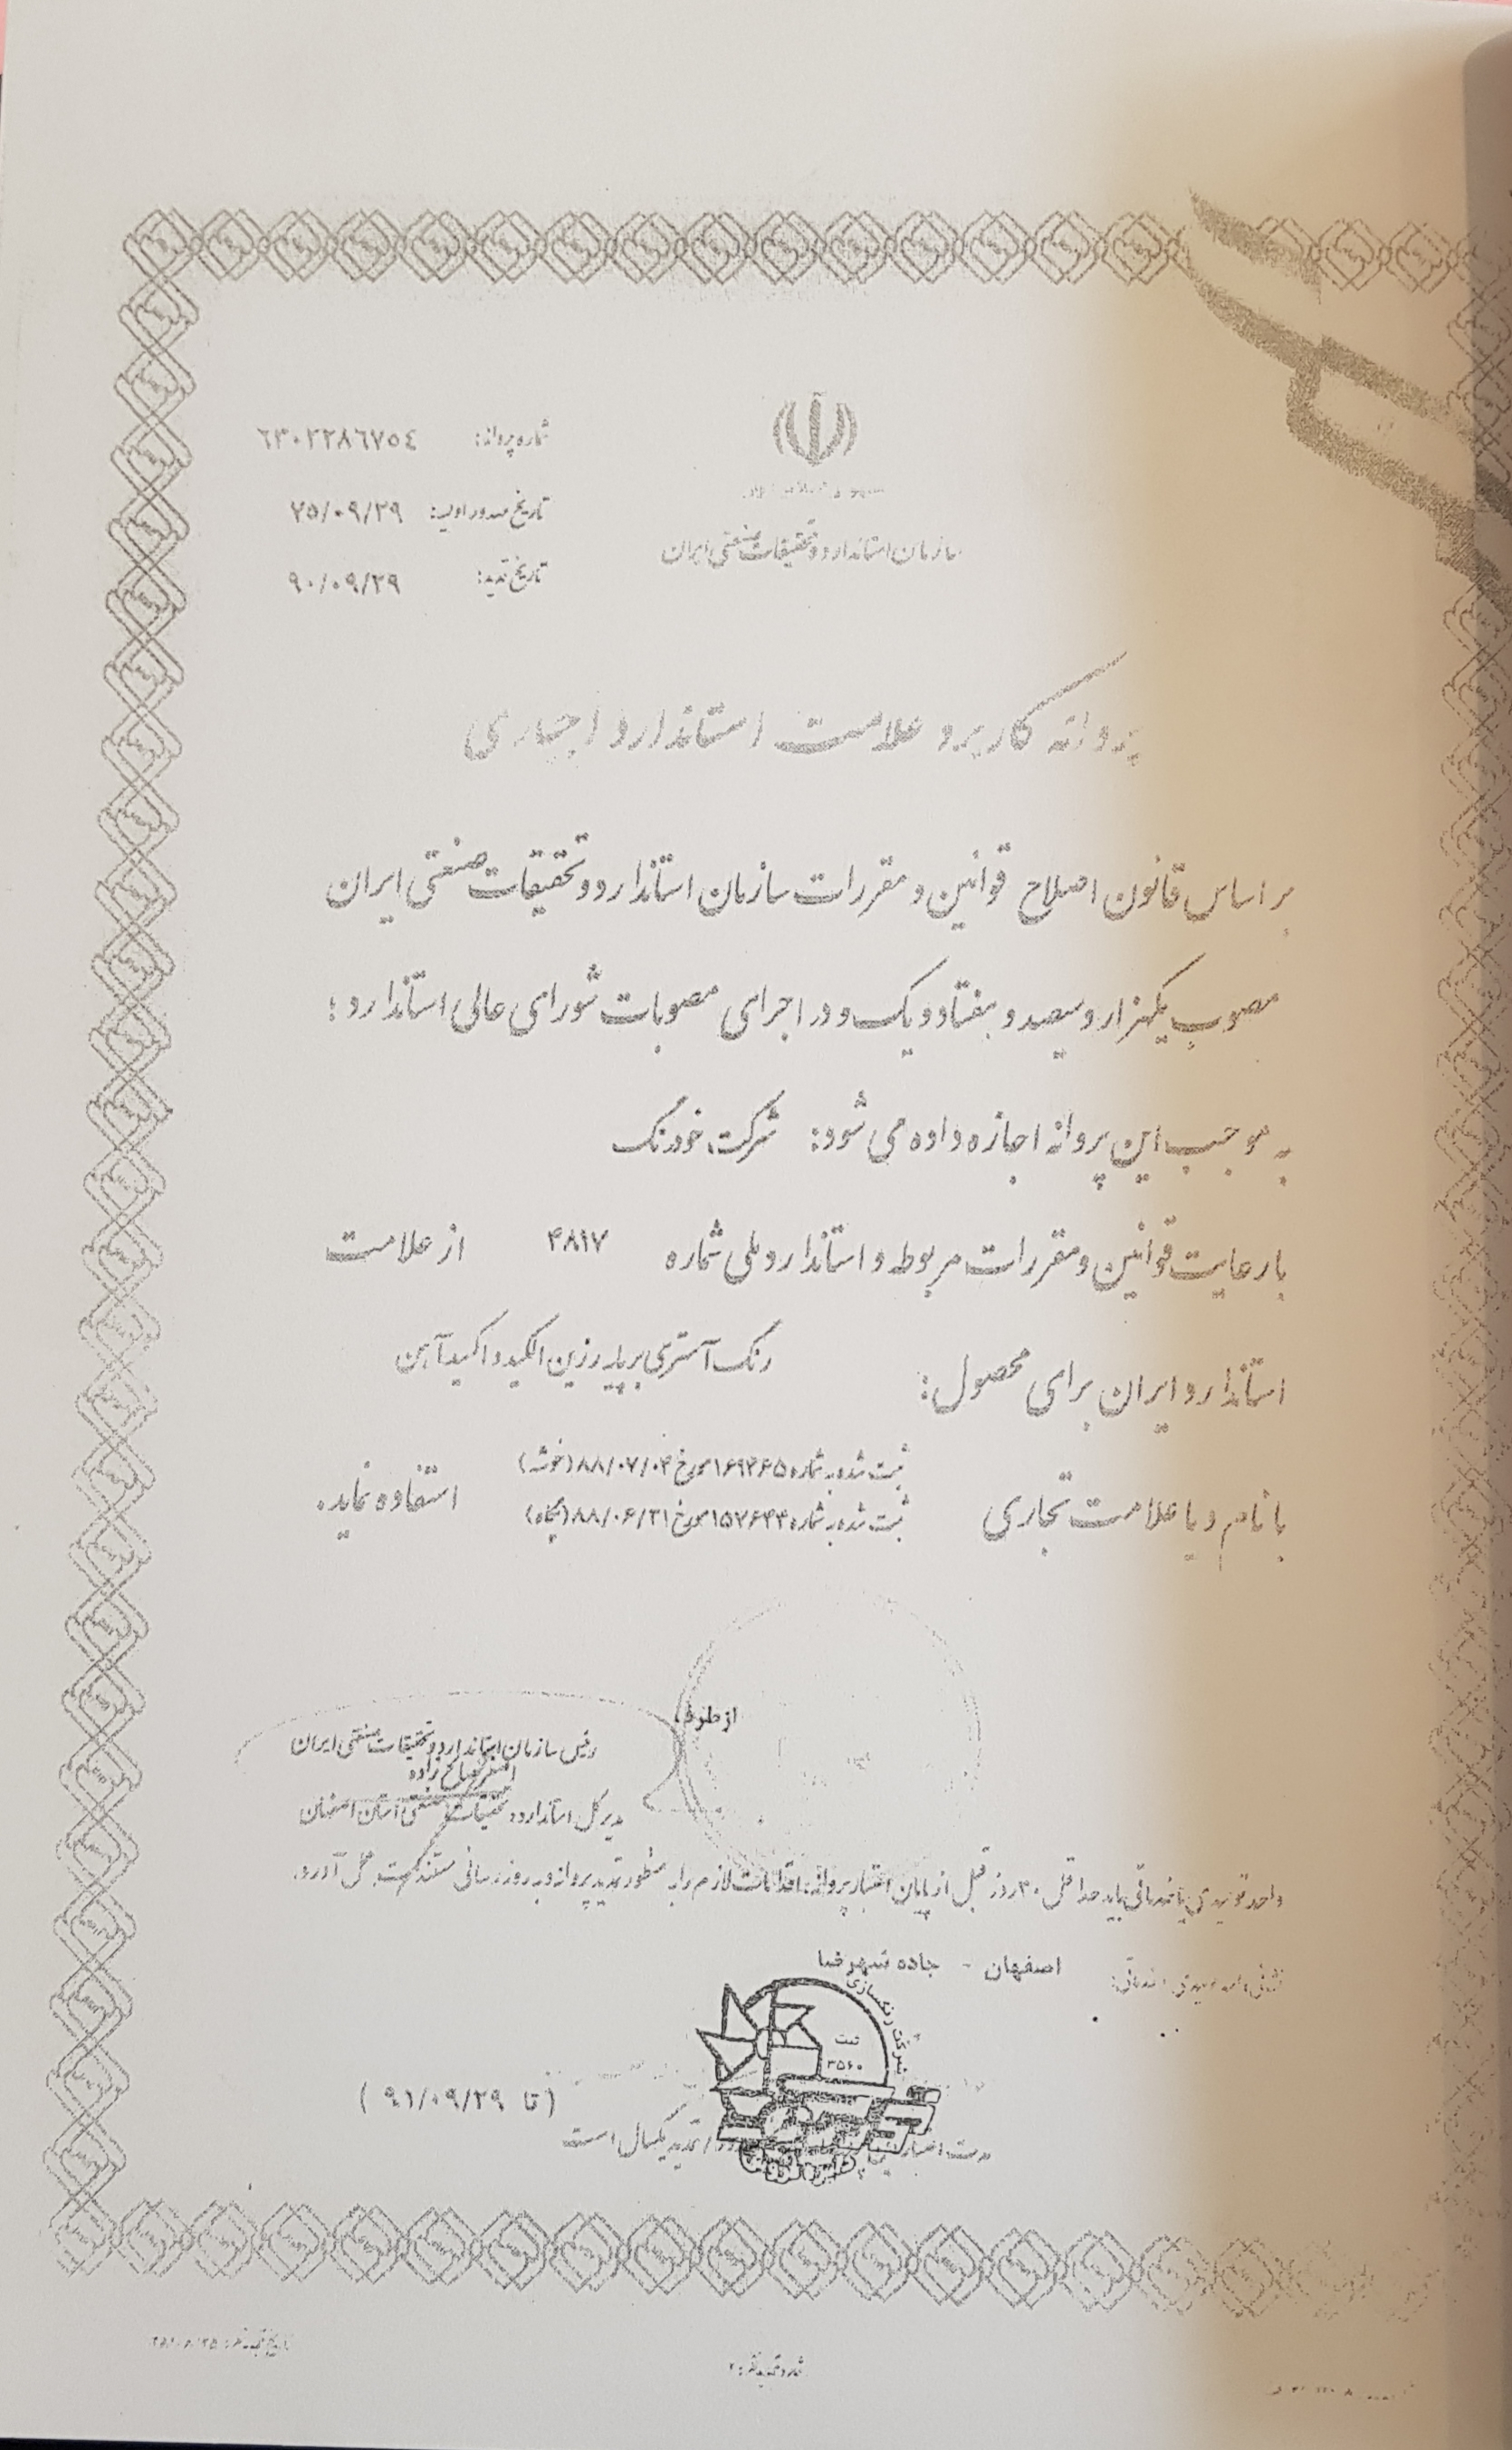 شماره پروانه: ٦٣٠٢٢٨٦٧٥٤
تاریخ صدور اولیه: ۷۵/۰۹/۲۹
تاریخ تمدید: ۹۰/۰۹/۲۹
سازمان استاندارد و تحقیقات صنعتی ایران
پروانه کاربرد علامت استاندارد اجباری
بر اساس قانون اصلاح قوانین و مقررات سازمان استاندارد و تحقیقات صنعتی ایران
مصوب یکهزار و سیصد و هفتاد و یک و در اجرای مصوبات شورای عالی استاندارد :
به موجب این پروانه اجازه داده می شود: شرکت خودرنگ
با رعایت قوانین و مقررات مربوطه و استاندارد ملی شماره ۴۸۱۷ از علامت
استاندارد ایران برای محصول: رنگ آستری بر پایه رزین الکید و اکسید آهن
ثبت شده به شماره ۱۶۹۲۶۵ مورخ ۸۸/۰۷/۰۴ (خوشه)
با نام و یا علامت تجاری استفاده نماید.
ثبت شده به شماره ۱۵۷۶۴۴ مورخ ۸۸/۰۶/۳۱
از طرف
رئیس سازمان استاندارد و تحقیقات صنعتی ایران
مدیر کل استاندارد و تحقیقات صنعتی استان اصفهان
واحد تولیدی یا خدماتی باید حداقل ۳۰ روز قبل از پایان اعتبار پروانه، اقدامات لازم را به منظور تمدید پروانه و به روز رسانی مستندات بعمل آورد.
نشانی واحد تولیدی / خدماتی: اصفهان - جاده شهرضا
شرکت رنگسازی
ثبت
۳۵۶۰
(تا ۹۱/۰۹/۲۹ )
مدت اعتبار تمدید یکسال است